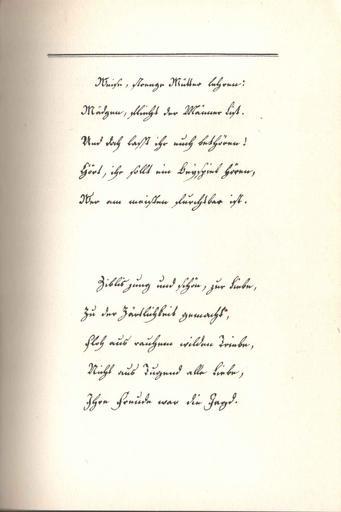 Weise, strenge Mütter lehren:
Mädgen, flieht der Männer List.
Und doch laßt ihr euch bethören!
Hört, ihr sollt ein Beyspiel hören,
Wer am meisten furchtbar ist.
Ziblis jung und schön, zur Liebe,
Zu der Zärtlichkeit gemacht,
Floh aus rauhem wilden Triebe,
Nicht aus Tugend alle Liebe,
Ihre Freude war die Jagd.